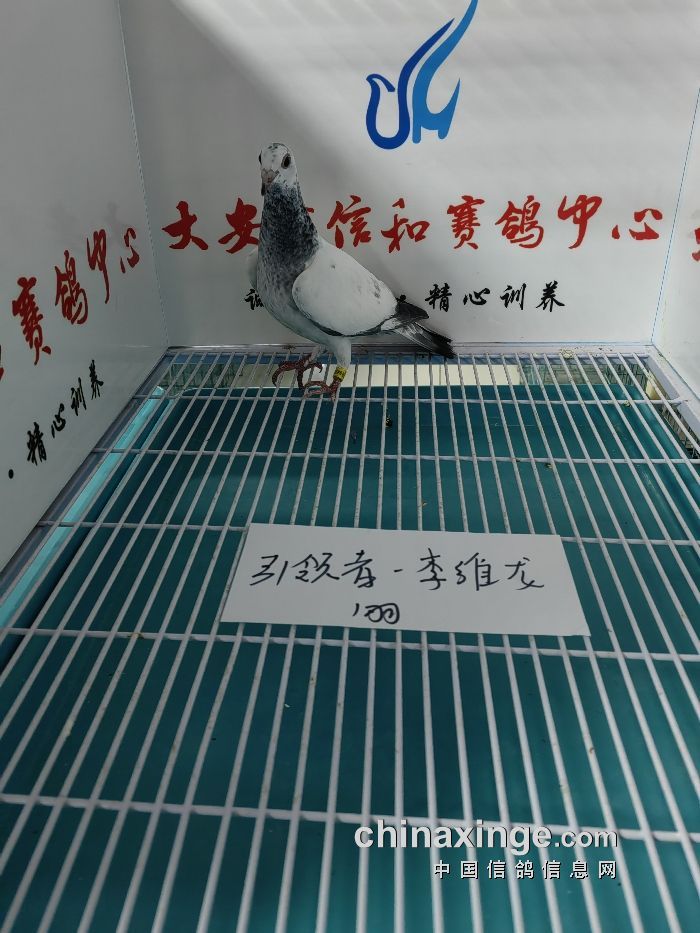 大安 信和赛鸽中心
诚 精心训养
赛鸽中心
·精心训养
引领者-李维龙
1羽
chinaxinge.com
中国信鸽信息网